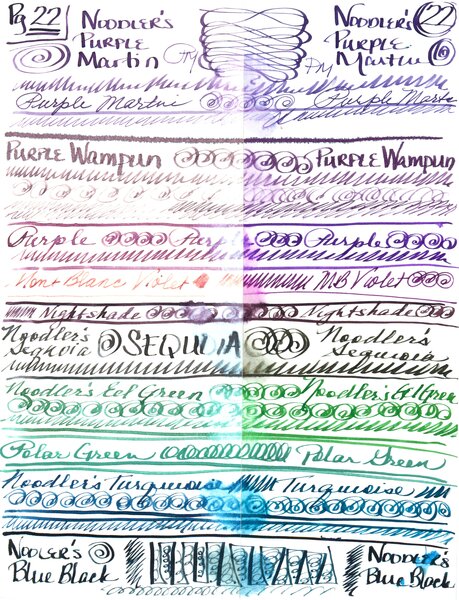 Pg 22 Noodler's Purple Martin
Noodler's Purple Martin 22
Purple Martin Purple Martin
Purple Wampun Purple Wampun
Purple Purple Purple
Mont Blanc Violet MB Violet
Nightshade Nightshade
Noodler's Sequoia SEQUOIA Noodler's Sequoia
Noodler's Eel Green Noodler's Eel Green
Polar Green Polar Green
Noodler's Turquoise Turquoise
Noodler's Blue Black Noodler's Blue Black